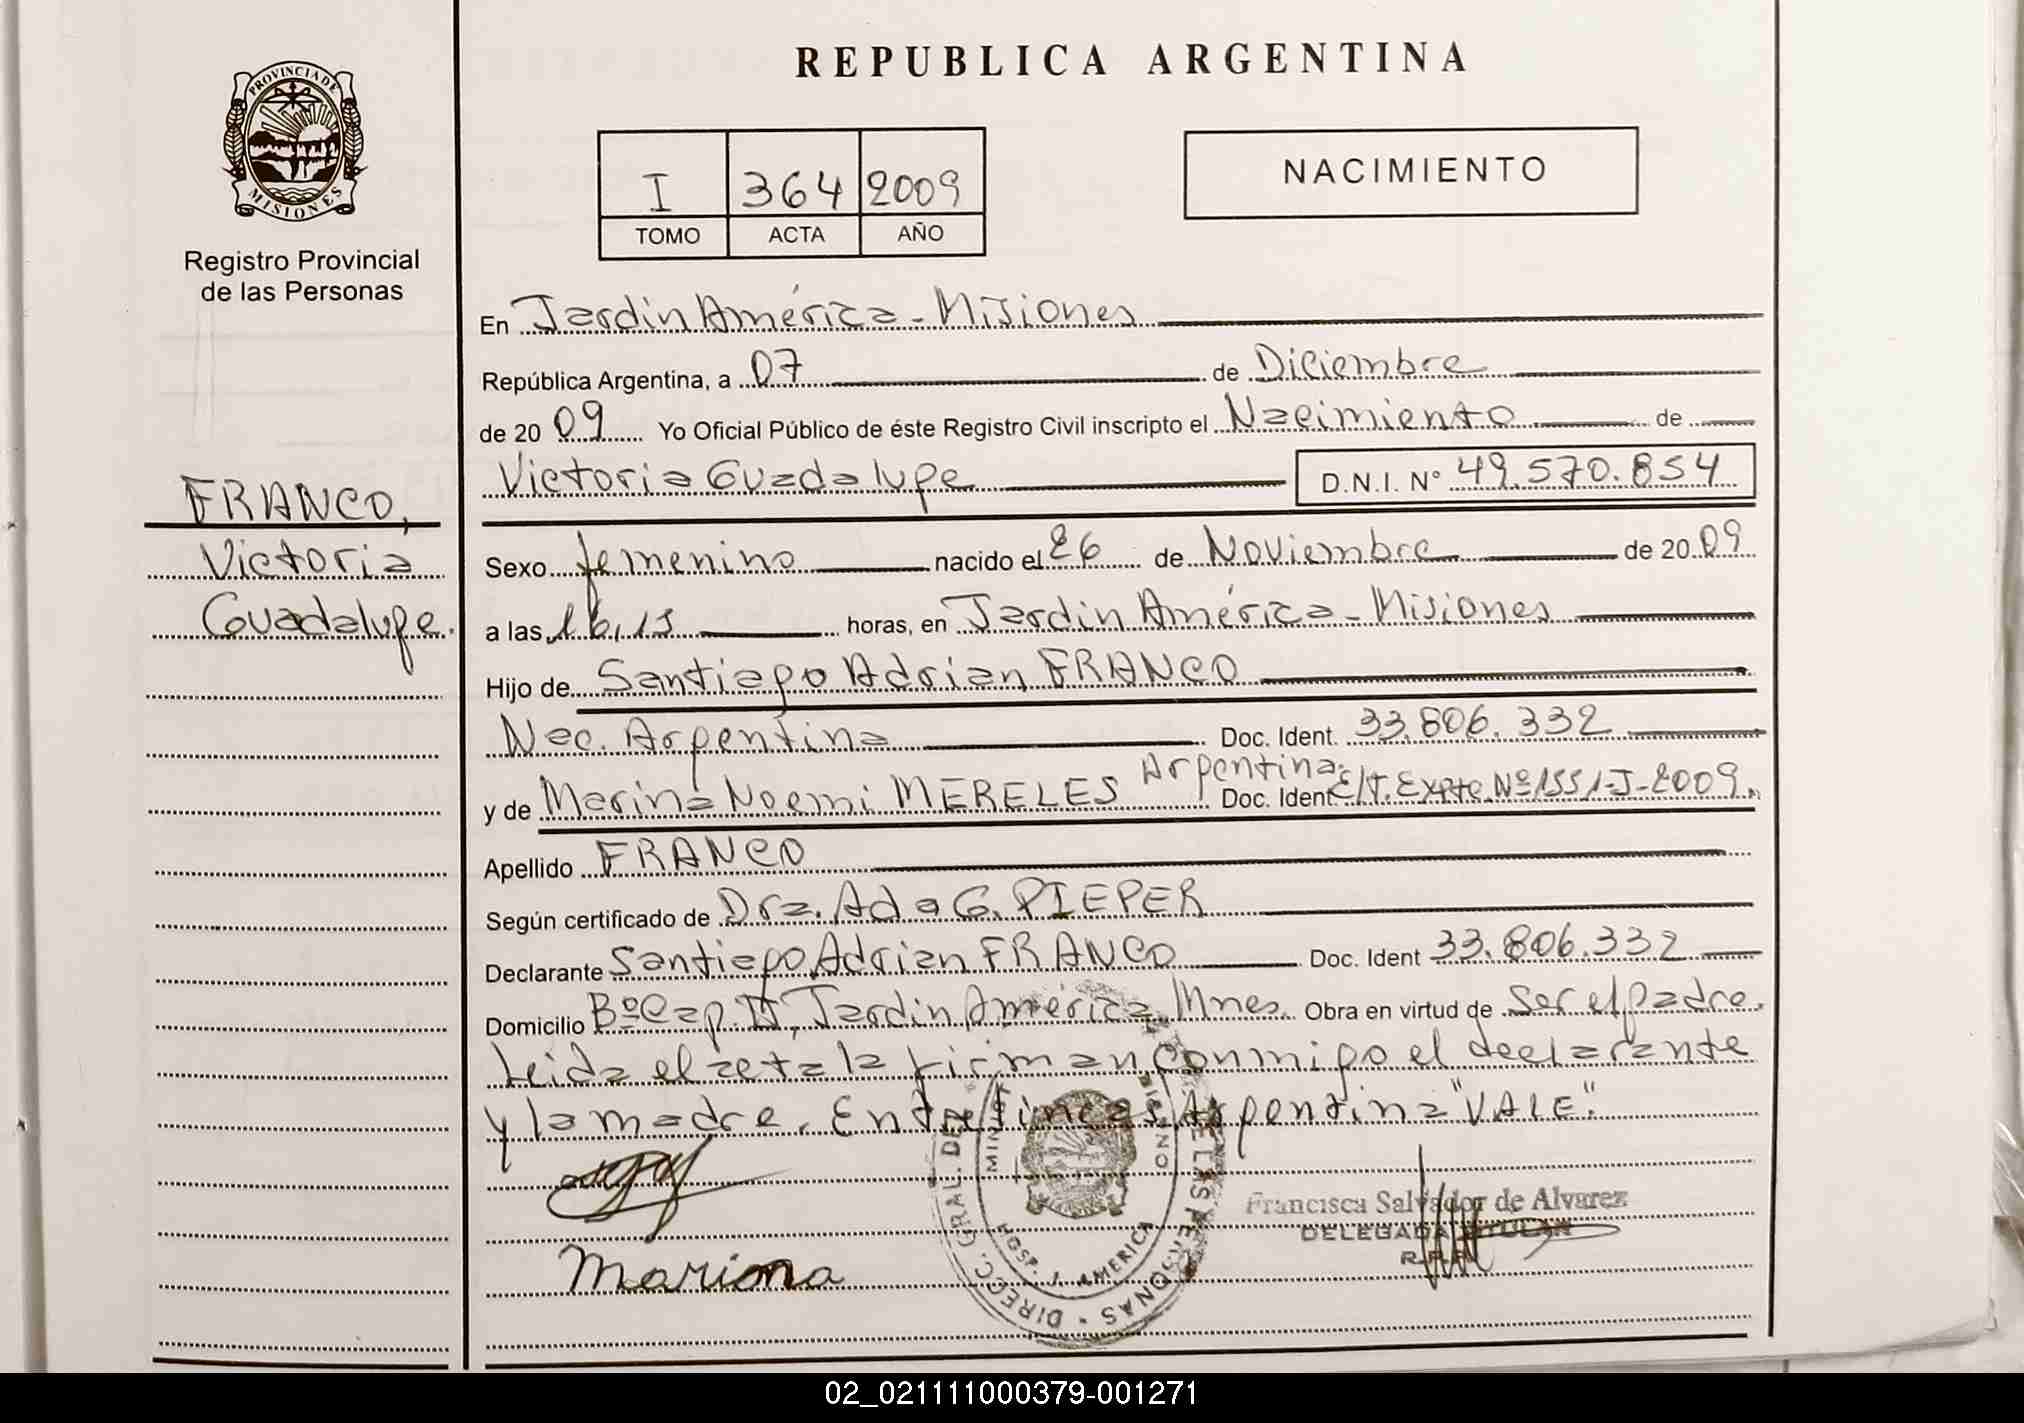 REPUBLICA ARGENTINA
PROVINCIA DE
MISIONES
Registro Provincial
de las Personas
I 364 2009
TOMO ACTA AÑO
NACIMIENTO
En Jardín América - Misiones
República Argentina, a 07 de Diciembre
de 20 09 Yo Oficial Público de éste Registro Civil inscripto el Nacimiento de
Victoria Guadalupe D.N.I. N° 49.570.854
FRANCO,
Victoria
Guadalupe.
Sexo femenino nacido el 26 de Noviembre de 20 09
a las 16,15 horas, en Jardín América - Misiones
Hijo de Santiago Adrian FRANCO
Nac. Argentina Doc. Ident. 33.806.332
Argentina
y de Marina Noemi MERELES Doc. Ident E/T. Expte. Nº 1551-J-2009.
Apellido FRANCO
Según certificado de Dra. Ada G. PIEPER
Declarante Santiago Adrian FRANCO Doc. Ident 33.806.332
Domicilio BºCap. II, Jardín América, Mnes. Obra en virtud de Ser el padre.
Leida el acta la firman conmigo el declarante
y la madre. Entre lineas Argentina "VALE".
DIRECC. GRAL. DE LAS PERSONAS
HOSP. J. AMERICA
Francisca Salvador de Alvarez
DELEGADA TITULAR
R.P.P.
Mariana
02_021111000379-001271